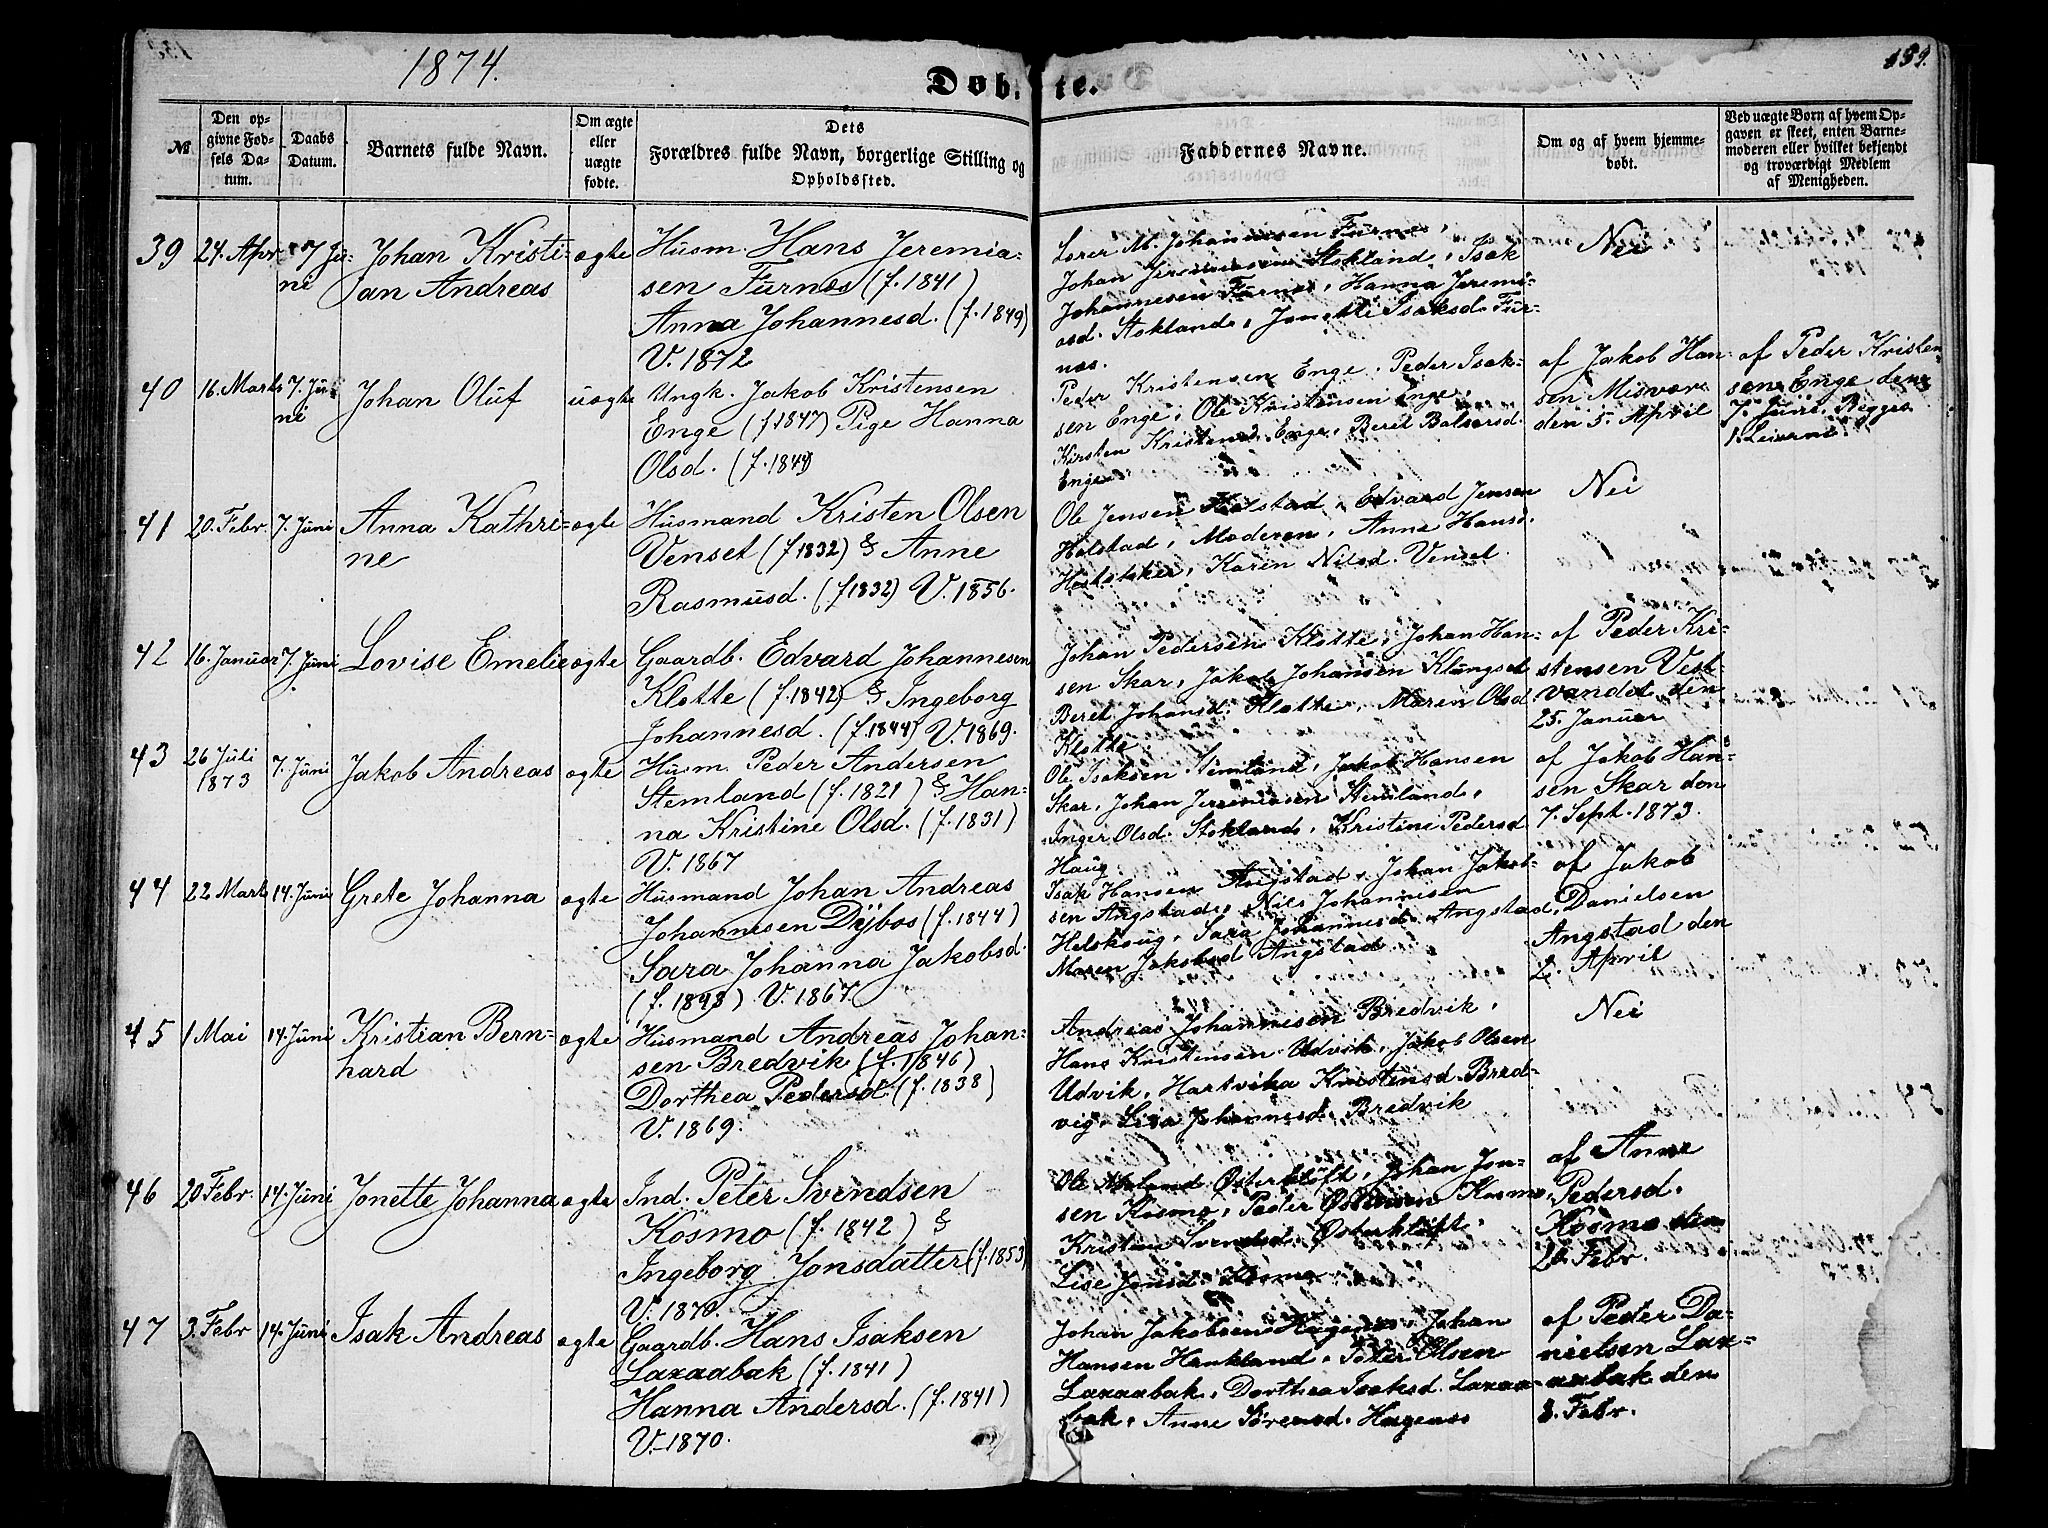 1874.
Døbte.
139.
№
Den op-
givne Fød-
sels Da-
tum.
Daabs
Datum.
Barnets fulde Navn.
Om ægte
eller
uægte
fødte.
Dets
Forældres fulde Navn, borgerlige Stilling og
Opholdssted.
Faddernes Navne.
Om og af hvem hjemme-
døbt.
Ved uægte Børn af hvem Op-
gaven er skeet, enten Barne-
moderen eller hvilket bekjendt
og troværdigt Medlem
af Menigheden.
39
24. Apr
7 Ju-
ni
Johan Kristi-
an Andreas
ægte
Husm. Hans Jeremia-
sen Furnes (f. 1841)
Anna Johannesd. (f. 1849)
V. 1872
Lorer M. Johannesen Furnes,
Johan Jeremiasen Stokland, Isak
Johannesen Furnes, Hanna Jeremi-
asd. Stokland, Jonette Isaksd. Fur-
nes.
Nei
40
16. Marts
7. Ju-
ni
Johan Oluf
uægte
Ungk. Jakob Kristensen
Enge (f 1847) Pige Hanna
Olsd. (f. 1844)
Peder Kristensen Enge, Peder Isak-
sen Enge, Ole Kristensen Enge,
Kirsten Kristensd. Enge, Beret Balsersd.
Enge
af Jakob Han-
sen Misvær
den 5. April
af Peder Kristen-
sen Enge den
7. Juni. Begges
1. Leierm.
41
20. Febr.
7. Juni
Anna Kathri-
ne
ægte
Husmand Kristen Olsen
Venset (f 1832) & Anne
Rasmusd. (f 1832) V. 1856.
Ole Jensen Holstad, Edvard Jensen
Holstad, Moderen, Anne Hansd.
Karen Nilsd. Venset
Nei
42
16. Januar
7. Juni
Lovise Emelie
ægte
Gaardb. Edvard Johannesen
Kløtte (f. 1842) & Ingeborg
Johannesd. (f. 1844) V. 1869.
Johan Pedersen Kløtte, Johan Han-
sen Skar, Jakob Johansen Klungset
Beret Johansd. Kløtte, Maren Olsd
Kløtte
af Peder Kri-
stensen Vest-
vandet den
25. Januar
43
26 Juli
1873
7. Juni
Jakob Andreas
ægte
Husm. Peder Andersen
Stemland (f. 1821) & Han-
na Kristine Olsd. (f. 1831)
V. 1867
Ole Isaksen Stemland, Jakob Hansen
Skar, Johan Jeremiasen Stemland,
Inger Olsd. Stokland, Kristine Pedersd
Haug
af Jakob Han-
sen Skar den
7. Sept. 1873.
44
22 Marts
14. Juni
Grete Johanna
ægte
Husmand Johan Andreas
Johannesen Dybos (f. 1844)
Sara Johanna Jakobsd.
(f. 1848) V. 1867.
Isak Hansen Angstad, Johan Jakob-
sen Angstad, Nils Johannesen
Helskoug, Sara Johannesd. Angstad,
Maren Jakobsd Angstad
af Jakob
Danielsen
Angstad den
2. April
45
1 Mai
14. Juni
Kristian Bern-
hard
ægte
Husmand Andreas Johan-
sen Bredvik (f. 1846)
Dorthea Pedersd (f. 1838)
V. 1869.
Andreas Johannesen Bredvik,
Hans Kristensen Udvik, Jakob Olsen
Udvik, Hartvika Kristensd. Bred-
vig, Lisa Johannesd. Bredvik
Nei
46
20 Febr.
14. Juni
Jonette Johanna
ægte
Ind. Peter Svendsen
Kosmo (f. 1842) &
Ingeborg Jonsdatter (f. 1853)
V. 1870.
Ole Østerkløft, Johan Jon-
sen Kosmo, Peder Kosmo,
Kristine Svendsd. Østerkløft,
Lise Jonsd. Kosmo
af Anne
Pedersd.
Kosmo den
20. Febr.
47
3. Febr
14. Juni
Isak Andreas
ægte
Gaardb. Hans Isaksen
Laxaabak (f. 1841)
Hanna Andersd. (f. 1841)
V. 1870.
Johan Jakobsen Hagenes, Johan
Hansen Peder Olsen
Laxaabak, Dorthea Isaksd. Laxaa-
bak, Anne Sørensd. Hagenes
af Peder Da-
nielsen Lax-
aabak den
8. Febr.